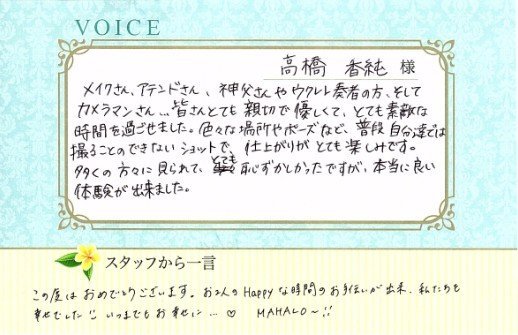 VOICE
高橋 香純 様
メイクさん、アテンドさん、神父さんやウクレレ奏者の方、そして
カメラマンさん…皆さんとても親切で優しくて、とても素敵な
時間を過ごせました。色々な場所やポーズなど、普段自分達では
撮ることのできないショットで、仕上がりがとても楽しみです。
多くの方々に見られて、とても恥ずかしかったですが、本当に良い
体験が出来ました。
スタッフから一言
この度はおめでとうございます。お2人のHappyな時間のお手伝いが出来、私たちも
幸せでした!! いつまでもお幸せに…♡ MAHALO~!!